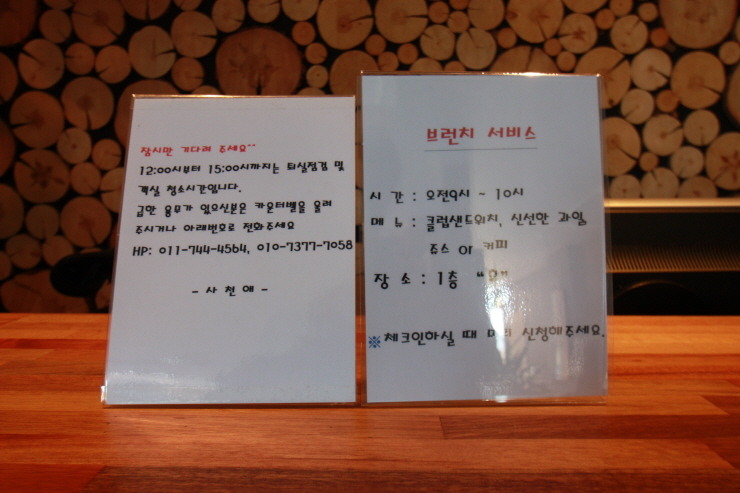 잠시만 기다려 주세요^^
12:00시부터 15:00시까지는 퇴실점검 및
객실 청소시간입니다.
급한 용무가 있으신분은 카운터벨을 울려
주시거나 아래번호로 전화주세요
HP: 011-744-4564, 010-7377-7058
- 사 천 애 -
브런치 서비스
시 간 : 오전9시 ~ 10시
메 뉴 : 클럽샌드위치, 신선한 과일
쥬스 or 커피
장 소 : 1층
※체크인하실 때 미리 신청해주세요.